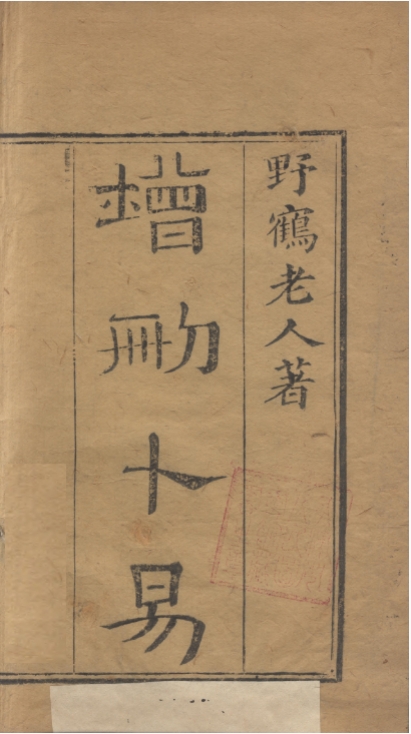 野鶴老人著
增刪卜易